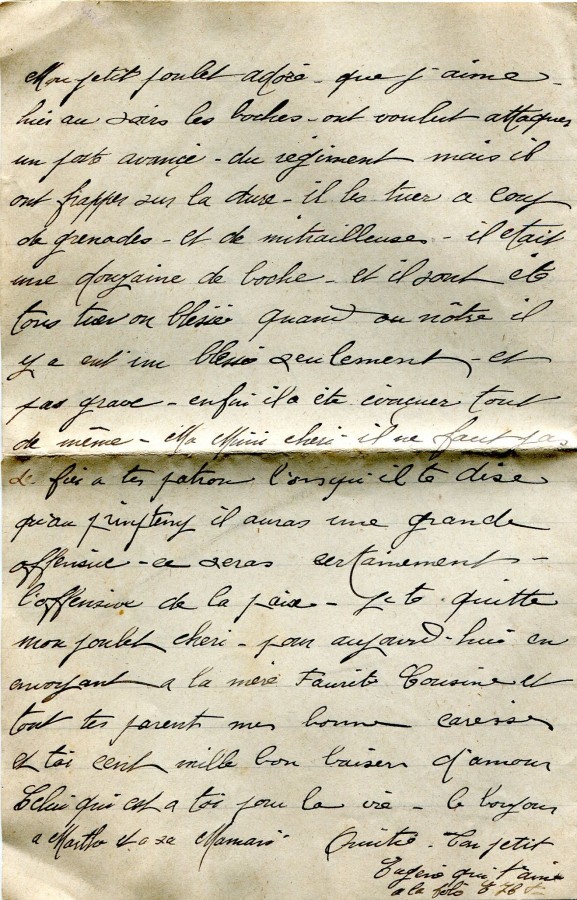 Mon petit poulet adoré - que j'aime -
hier au soirs les boches - ont voulut attaquer
un poste avancé - du regiment mais il
ont frapper sur la dure - il les tuer a coup
de grenades - et de mitrailleuses - il etait
une douzaine de boche - et il sont été
tous tuer ou blessé quand au nôtre il
y a eut un blessé seulement - et
pas grave - enfin il a été évacuer tout
de même - Ma Mimi cheri il ne faut pas
te fier a tes patron lorsqu'il te dise
qu'au printemps il auras une grande
offensive - ce seras certainement -
l'offensive de la paix - Je te quitte
mon poulet cheri - pour aujourd-hui en
envoyant a la mère Cousine et
tout tes parents mes bonne caresses
et toi cent mille bon baisers d'amour
Celui qui est a toi pour la vie - le bonjour
a Martha et a sa Maman Ton petit
Eugène qui t'aime
a la